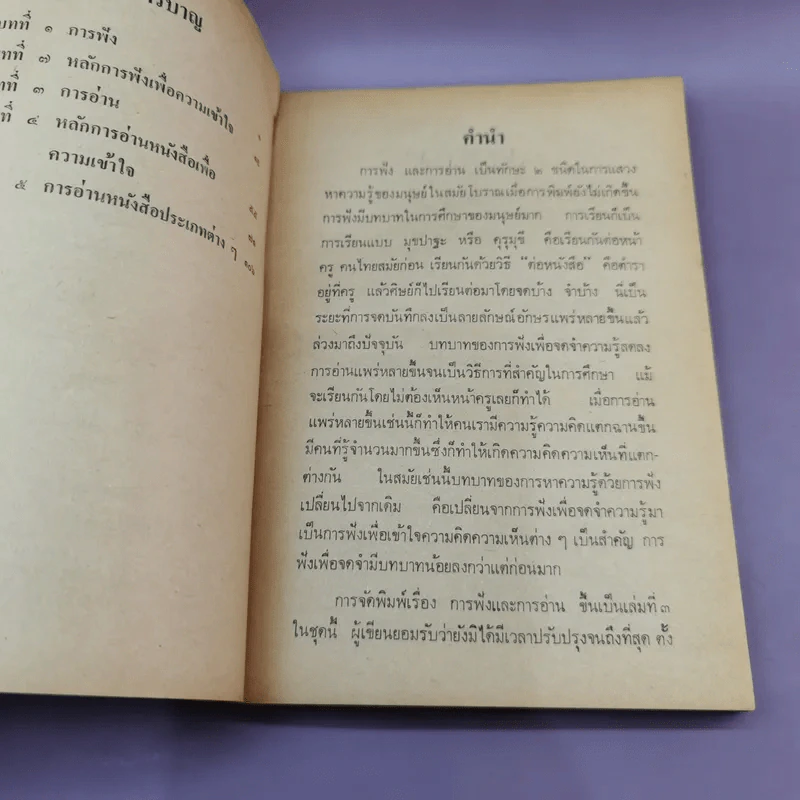 รบาญ
บทที่ ๑ การฟัง
ทที่ ๗ หลักการฟังเพื่อความเข้าใจ
ที่ ๓ การอ่าน
ที่ ๔ หลักการอ่านหนังสือเพื่อ
ความเข้าใจ
๕ การอ่านหนังสือประเภทต่าง ๆ ๑๐๖
คำนำ
การฟัง และการอ่าน เป็นทักษะ ๒ ชนิดในการแสวง
หาความรู้ของมนุษย์ในสมัยโบราณเมื่อการพิมพ์ยังไม่เกิดขึ้น
การฟังมีบทบาทในการศึกษาของมนุษย์มาก การเรียนก็เป็น
การเรียนแบบ มุขปาฐะ หรือ คุรุมุขี คือเรียนกันต่อหน้า
ครู คนไทยสมัยก่อน เรียนกันด้วยวิธี “ต่อหนังสือ” คือตำรา
อยู่ที่ครู แล้วศิษย์ก็ไปเรียนต่อมาโดยจดบ้าง จำบ้าง นี่เป็น
ระยะที่การจดบันทึกลงเป็นลายลักษณ์อักษรแพร่หลายขึ้นแล้ว
ล่วงมาถึงปัจจุบัน บทบาทของการฟังเพื่อจดจำความรู้ลดลง
การอ่านแพร่หลายขึ้นจนเป็นวิธีการที่สำคัญในการศึกษา แม้
จะเรียนกันโดยไม่ต้องเห็นหน้าครูเลยก็ทำได้ เมื่อการอ่าน
แพร่หลายขึ้นเช่นนี้ก็ทำให้คนเรามีความรู้ความคิดแตกฉานขึ้น
มีคนที่รู้จำนวนมากขึ้นซึ่งก็ทำให้เกิดความคิดความเห็นที่แตก-
ต่างกัน ในสมัยเช่นนี้บทบาทของการหาความรู้ด้วยการฟัง
เปลี่ยนไปจากเดิม คือเปลี่ยนจากการฟังเพื่อจดจำความรู้มา
เป็นการฟังเพื่อเข้าใจความคิดความเห็นต่าง ๆ เป็นสำคัญ การ
ฟังเพื่อจดจำมีบทบาทน้อยลงกว่าแต่ก่อนมาก
การจัดพิมพ์เรื่อง การฟังและการอ่าน ขึ้นเป็นเล่มที่ ๓
ในชุดนี้ ผู้เขียนยอมรับว่ายังมิได้มีเวลาปรับปรุงจนถึงที่สุด ตั้ง